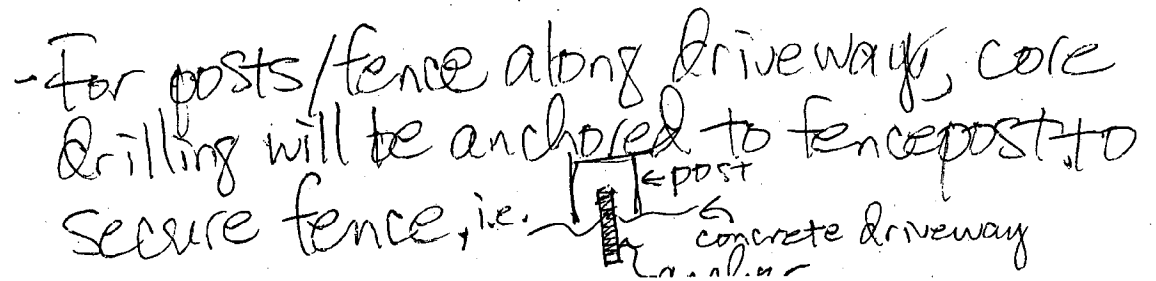 - For posts/fence along driveway, core
drilling will be anchored to fencepost, to
secure fence, i.e.
← post
concrete driveway